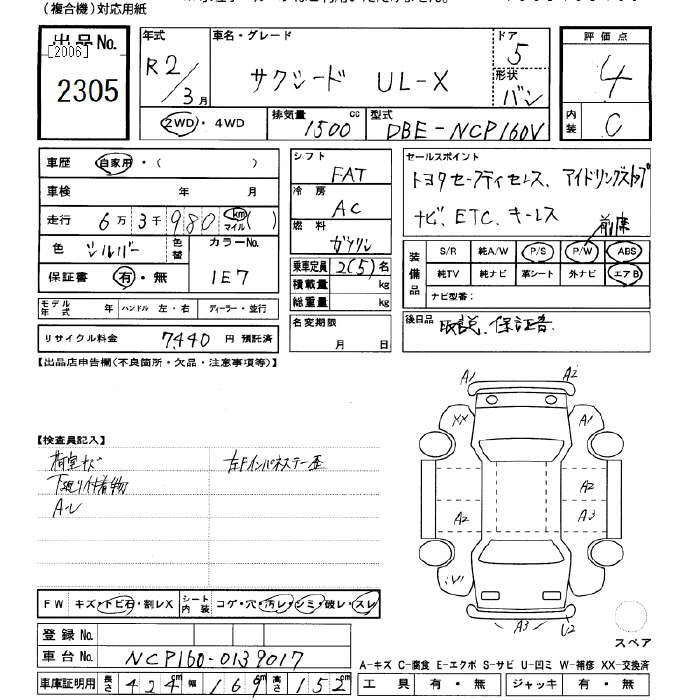 (複合機)対応用紙
出品No.
[2006]
2305
年式
R2/3月
車名・グレード
サクシード UL-X
ドア
5
形状
バン
評価点
4
内装
C
2WD・4WD
排気量
1500 cc
型式
DBE-NCP160V
車歴 自家用・( )
車検 年 月
走行 6万3千980 km マイル ( )
色 シルバー 色替
カラーNo.
1E7
保証書 有・無
モデル年式 年 ハンドル 左・右 ディーラー・並行
リサイクル料金 7,440 円 預託済
シフト
FAT
冷房
AC
燃料
ガソリン
乗車定員 2(5)名
積載量 kg
総重量 kg
名変期限
月 日
セールスポイント
トヨタセーフティセンス、アイドリングストップ
ナビ、ETC、キーレス
前席
装備品
S/R 純A/W P/S P/W ABS
純TV 純ナビ 革シート 外ナビ エアB
ナビ型番:
後日品
取説、保証書
【出品店申告欄(不良箇所・欠品・注意事項等)】
【検査員記入】
荷室キズ
下廻り付着物
A-U
左Fインパネステー歪
A1
A2
XX
A1
A2
A2
A3
U1
A3
U2
スペア
FW キズ・トビ石・割レX
シート内装 コゲ・穴・汚レ・シミ・破レ・スレ
登録No.
車台No. NCP160-0139017
車庫証明用 長さ 424 cm 幅 169 cm 高さ 152 cm
A-キズ C-腐食 E-エクボ S-サビ U-凹ミ W-補修 XX-交換済
工具 有・無 ジャッキ 有・無